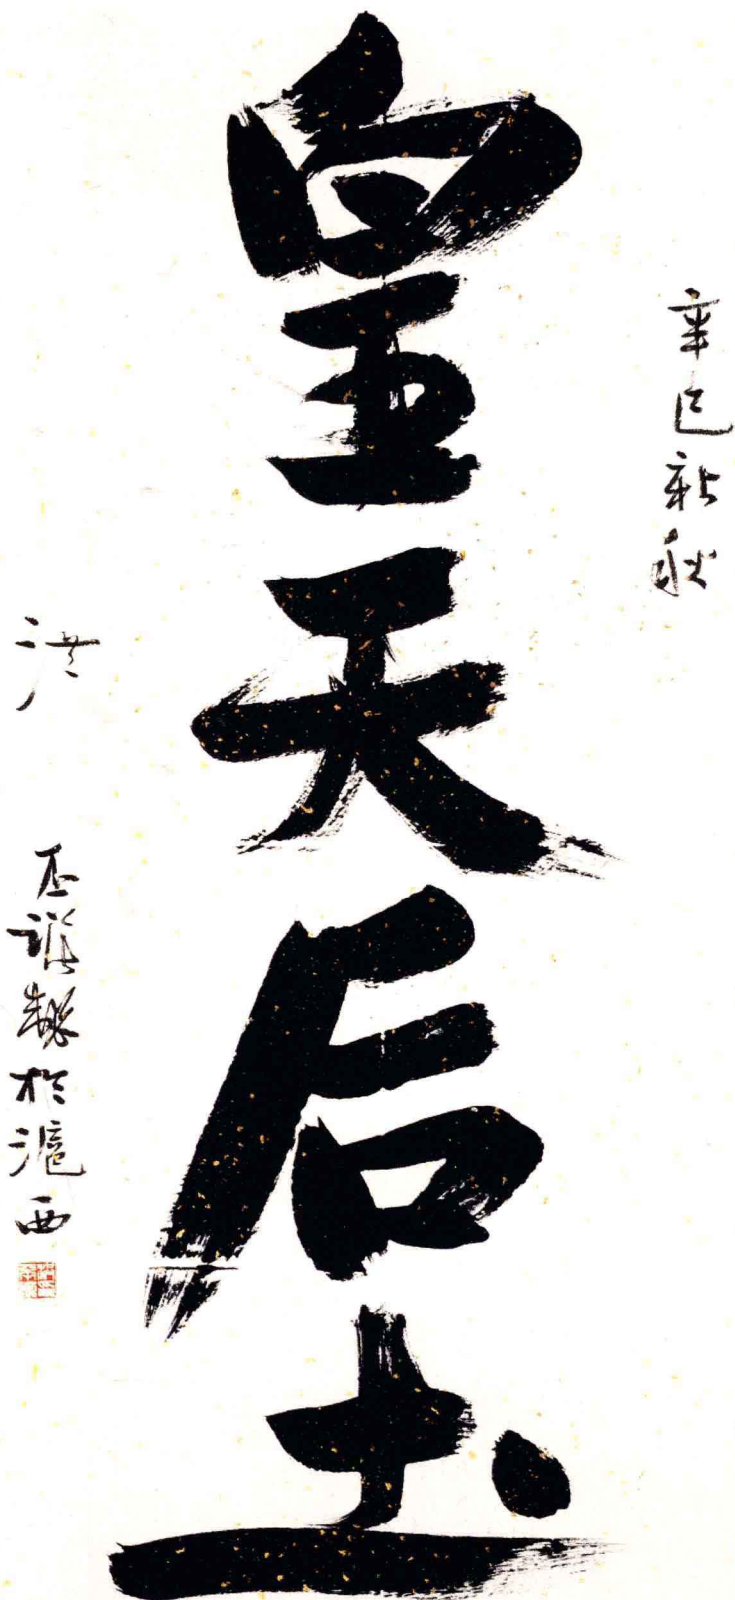 辛巳新秋
皇天后土
洪
丕謨書於滬西